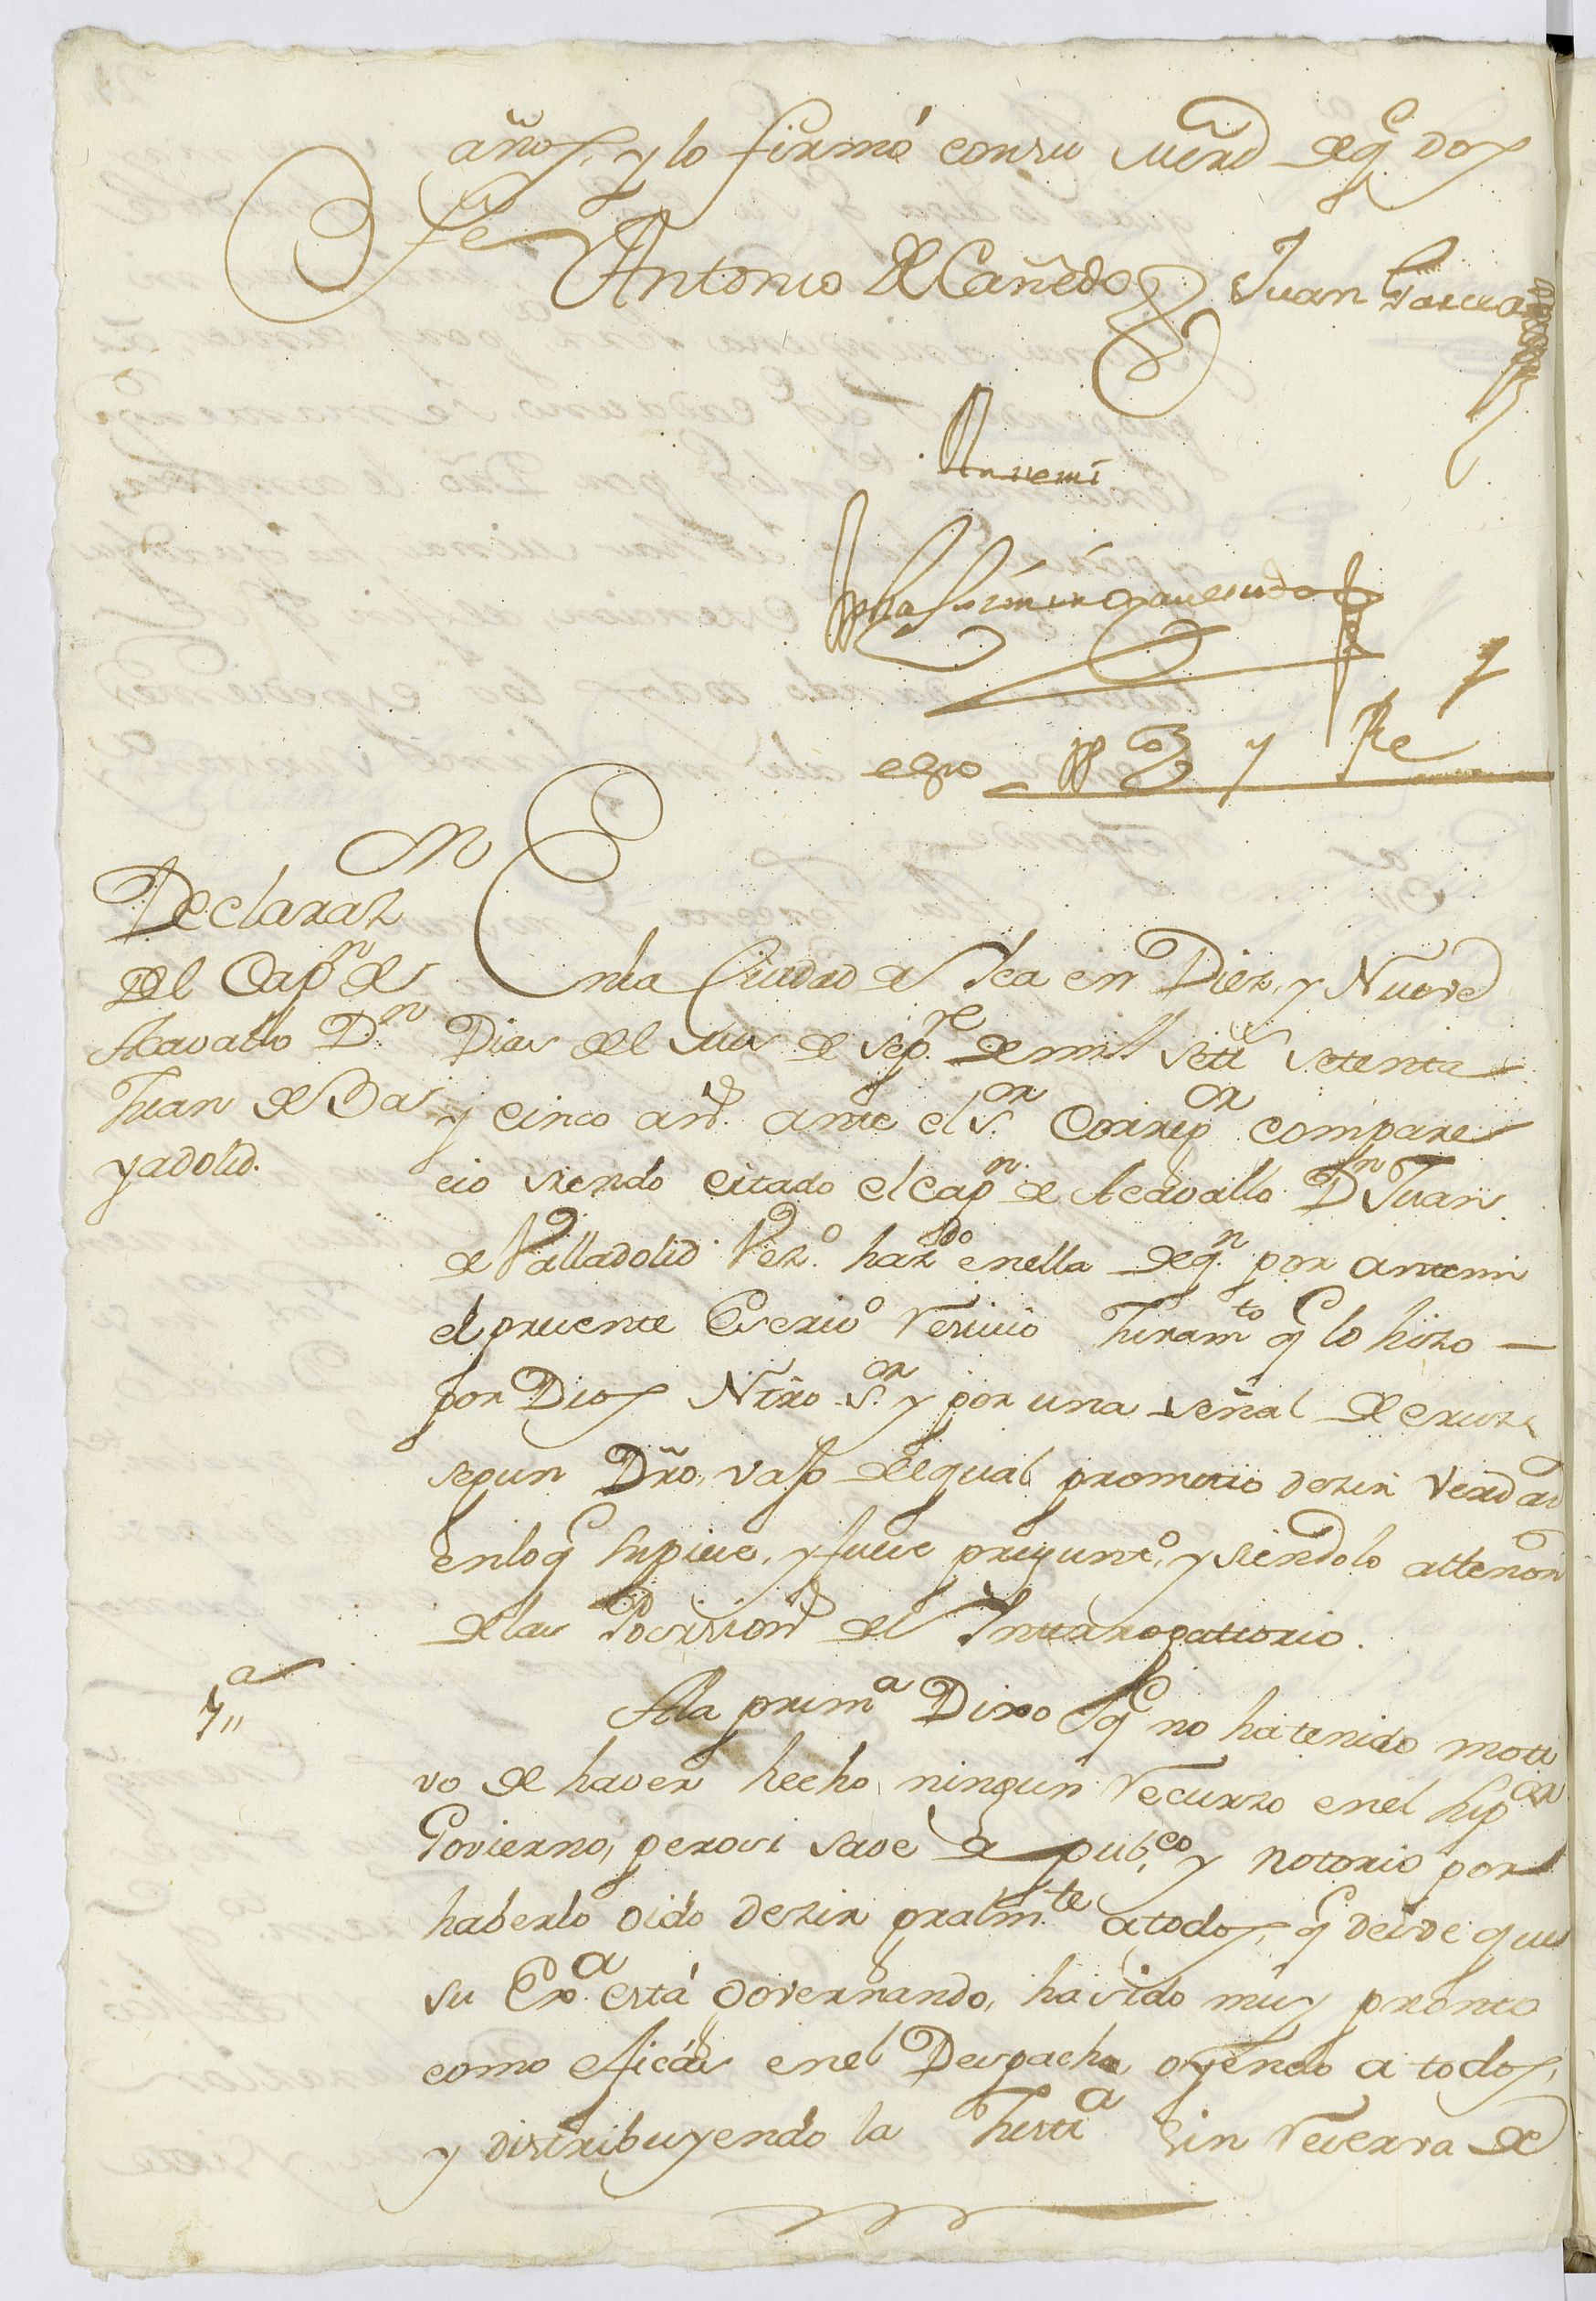 años, y lo firmó con su merd de q̃ doy
fe
Antonio de Cañedo Juan Garcia
Ante mi
esno pp co y Re
Declaraz.n
del Cap.n de
Acavallo D.n
Juan de Ba
yadolid.
En la Ciudad de Ica en Diez, y Nueve
Dias del mes de sep.re de mill setz setenta
y cinco ans. ante el S.or Correg.or compare
cio siendo citado el cap.n de Acavallo D.n Juan
de Valladolid Vez.o haz.do en ella de q.n por ante mi
el presente Escriv.o resivio Juram.to q̃ lo hizo
por Dios Ntro S.or y por una señal de cruz
segun Dro, vajo del qual prometio dezir verdad
en lo q̃ supiere, y fuere pregunt.o, y siendolo al tenor
de las Posision.s del Interrogattorio.
1,,a
A la prim.a Dixo q̃ no ha tenido moti
vo de haver hecho ningun recurso en el sup.or
Govierno, pero si save de pub.co y notorio por
haberlo oido dezir gralm.te a todos, q̃ desde que
su Ex.a está governando, ha sido muy pronto
como eficás en el Despacho oyendo a todos,
y distribuyendo la Justi.a sin reserva de